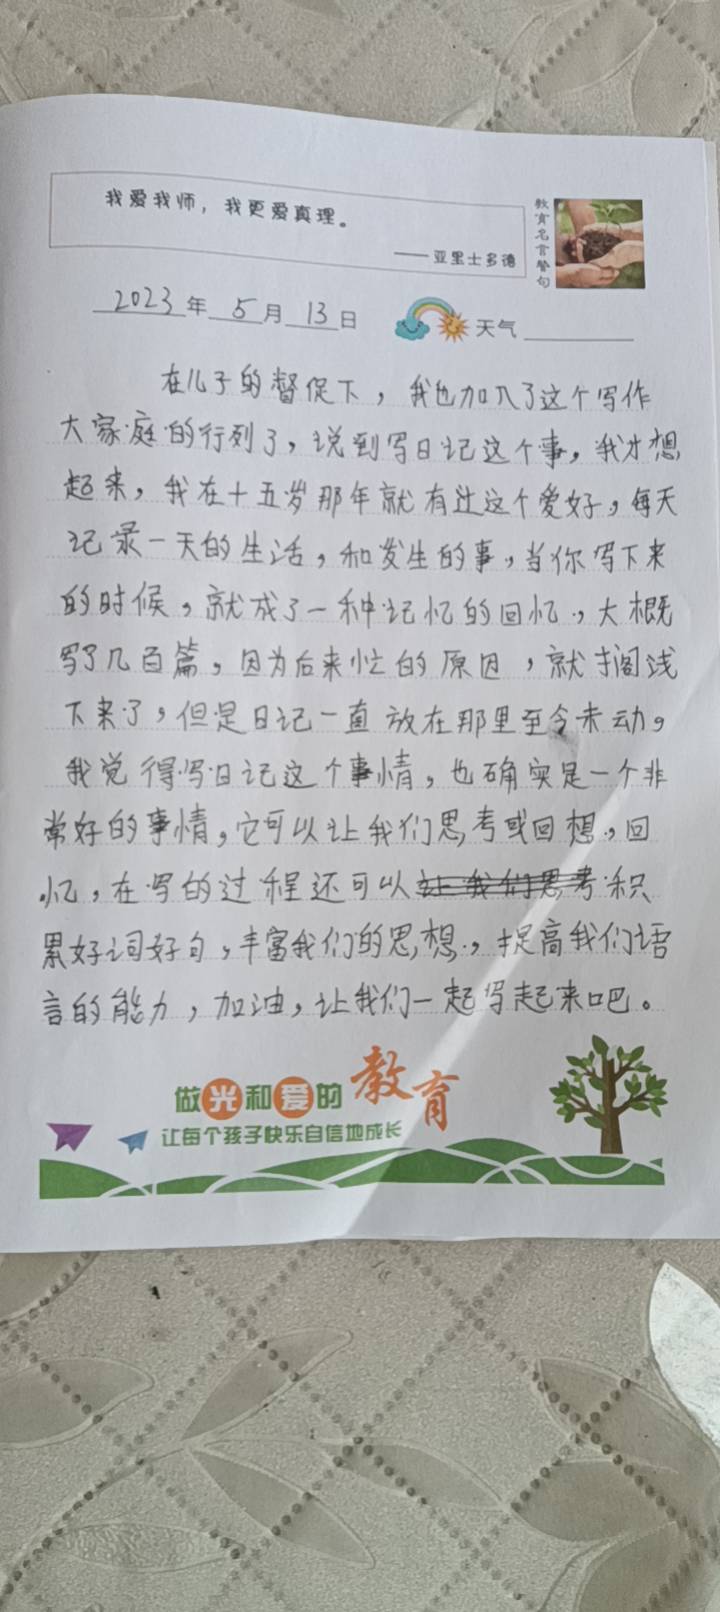 我爱我师，我更爱真理。
——亚里士多德
教育名言警句
2023年5月13日
天气
在儿子的督促下，我也加入了这个写作
大家庭的行列了，说到写日记这个事，我才想
起来，我在十五岁那年就有过这个爱好，每天
记录一天的生活，和发生的事，当你写下来
的时候，就成了一种记忆的回忆，大概
写了几百篇，因为后来忙的原因，就搁浅
下来了，但是日记一直放在那里至今未动。
我觉得写日记这个事情，也确实是一个非
常好的事情，它可以让我们思考或回想，回
忆，在写的过程还可以让我们思考积
累好词好句，丰富我们的思想，提高我们语
言的能力，加油，让我们一起写起来吧。
做光和爱的教育
让每个孩子快乐自信地成长